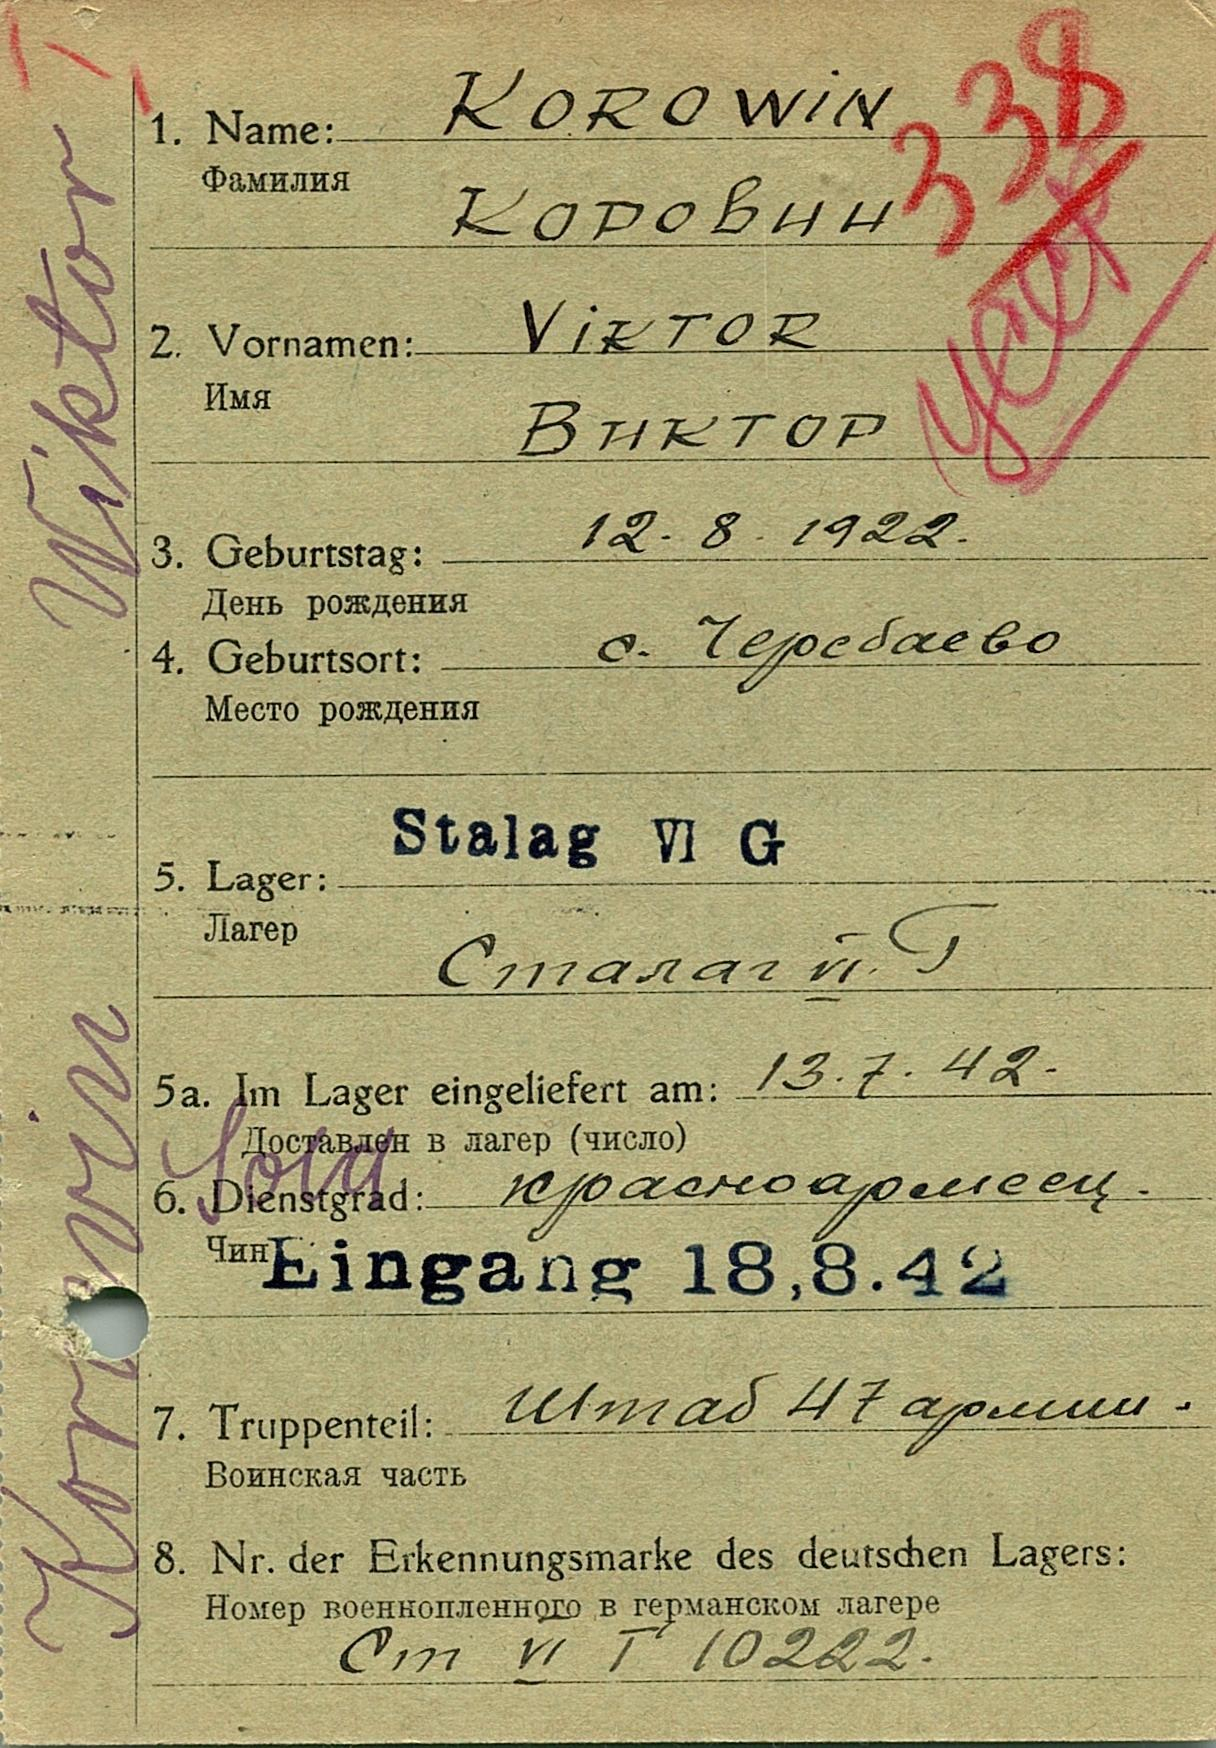 338
усср
1. Name: KOROWIN
Фамилия
Коровин
2. Vornamen: VIKTOR
Имя
Виктор
3. Geburtstag: 12. 8. 1922.
День рождения
4. Geburtsort: с. Черебаево
Место рождения
Stalag VI G
5. Lager:
Лагер
Сталаг VI. Г
5a. Im Lager eingeliefert am: 13. 7. 42.
Доставлен в лагер (число)
Sold
6. Dienstgrad: красноармеец.
Чин
Eingang 18,8.42
7. Truppenteil: Штаб 47 армии.
Воинская часть
8. Nr. der Erkennungsmarke des deutschen Lagers:
Номер военнопленного в германском лагере
Ст VI Г 10222.
Korovin Wiktor